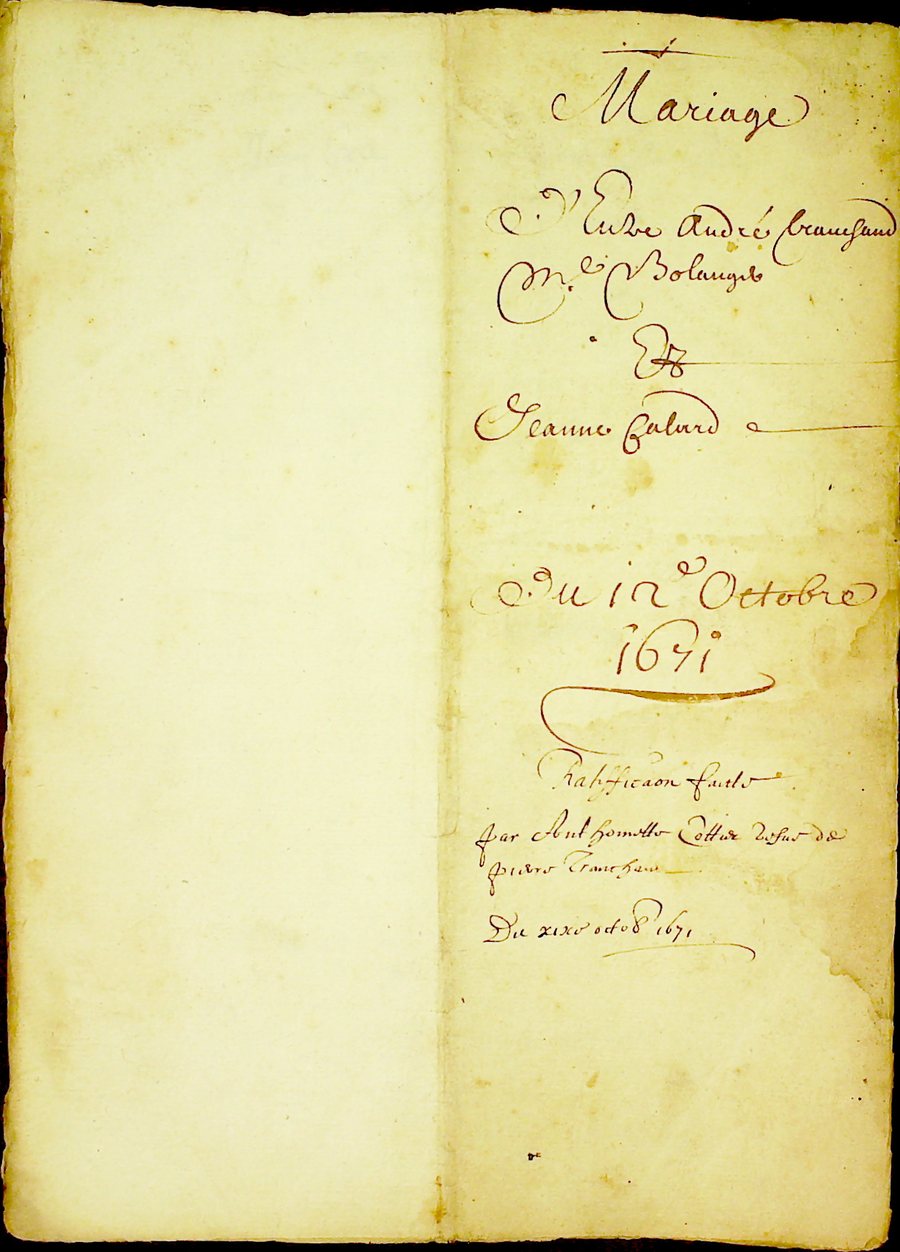 Mariage
D'Entre André Tranchand
M.e Bolanger
Et
Jeanne Galard
Du 12e Octobre
1671
Ratifficaon faicte
par Anthomette Cottin vefue de
pierre Tranchan
Du xixe octob 1671